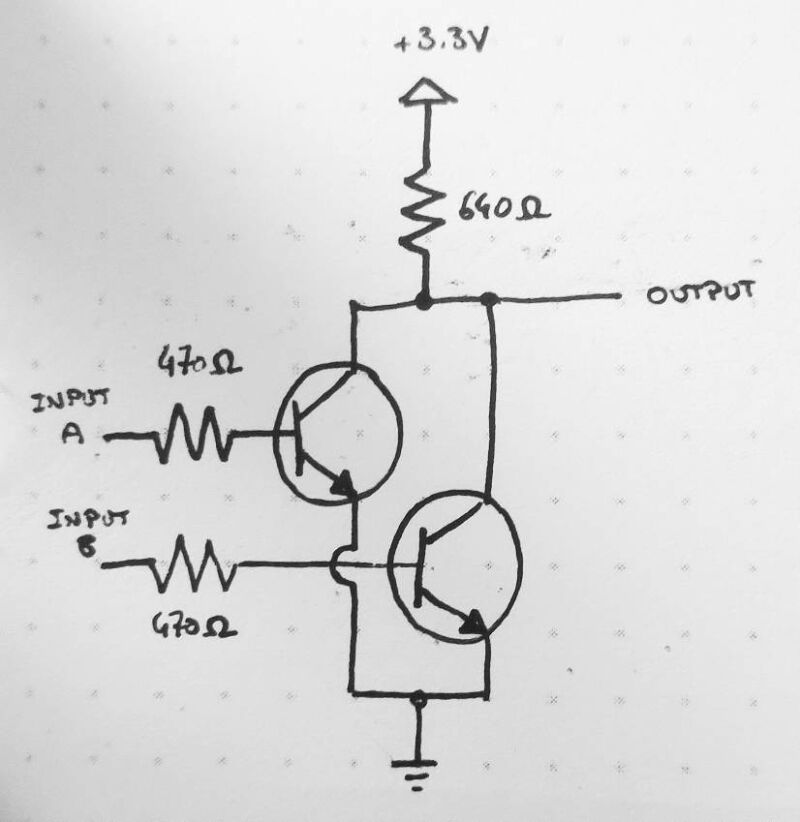 +3.3V
640Ω
OUTPUT
470Ω
INPUT
A
INPUT
B
470Ω